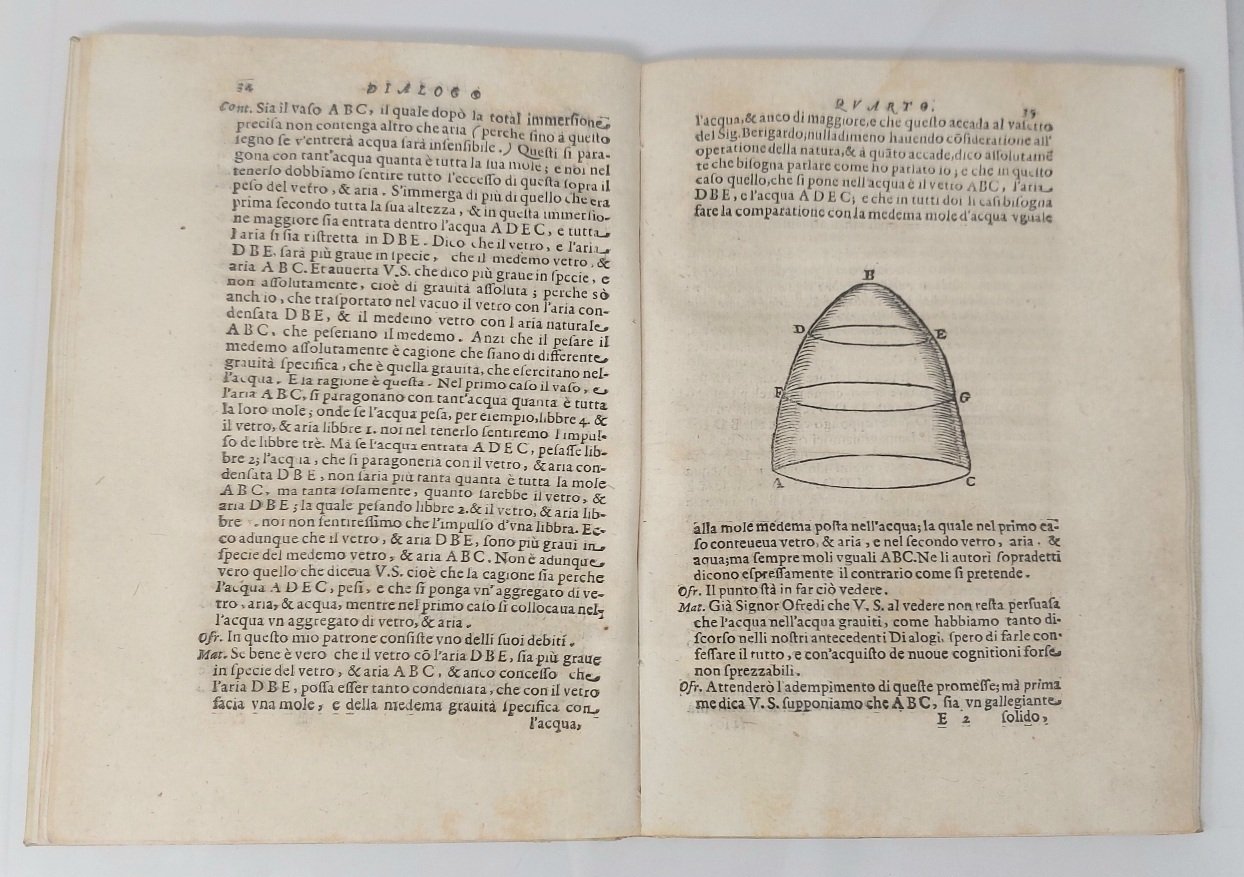 34 DIALOGO
Cont. Sia il vaſo ABC, il quale dopò la total immerſione
preciſa non contenga altro che aria (perche fino à queſto
ſegno ſe v'entrerà acqua ſarà inſenſibile.) Queſti ſi para-
gona con tant'acqua quanta è tutta la ſua mole; e noi nel
tenerlo dobbiamo ſentire tutto l'ecceſſo di queſta ſopra il
peſo del vetro, & aria. S'immerga di più di quello che era
prima ſecondo tutta la ſua altezza, & in queſta immerſio-
ne maggiore ſia entrata dentro l'acqua ADEC, e tutta
l'aria ſi ſia riſtretta in DBE. Dico che il vetro, e l'aria
DBE, ſarà più graue in ſpecie, che il medemo vetro, &
aria ABC. Et auuerta V.S. che dico più graue in ſpecie, e
non aſſolutamente, cioè di grauità aſſoluta; perche sò
anch io, che traſportato nel vacuo il vetro con l'aria con-
denſata DBE, & il medemo vetro con l aria naturale
ABC, che peſeriano il medemo. Anzi che il peſare il
medemo aſſolutamente è cagione che ſiano di differente
grauità ſpecifica, che è quella grauità, che eſercitano nel-
l'acqua. E la ragione è queſta. Nel primo caſo il vaſo, e
l'aria ABC, ſi paragonano con tant'acqua quanta è tutta
la loro mole; onde ſe l'acqua peſa, per eſempio, libbre 4. &
il vetro, & aria libbre 1. noi nel tenerlo ſentiremo l impul-
ſo de libbre trè. Mà ſe l'acqua entrata ADEC, peſaſſe lib-
bre 2; l'acqua, che ſi paragoneria con il vetro, & aria con-
denſata DBE, non ſaria più tanta quanta è tutta la mole
ABC, ma tanta ſolamente, quanto ſarebbe il vetro, &
aria DBE; la quale peſando libbre 2. & il vetro, & aria lib-
bre . noi non ſentireſſimo che l'impulſo d'vna libbra. Ec-
co adunque che il vetro, & aria DBE, ſono più graui in
ſpecie del medemo vetro, & aria ABC. Non è adunque
vero quello che diceua V.S. cioè che la cagione ſia perche
l'acqua ADEC, peſi, e che ſi ponga vn'aggregato di ve-
tro, aria, & acqua, mentre nel primo caſo ſi collocaua nel-
l'acqua vn aggregato di vetro, & aria.
Ofr. In queſto mio patrone conſiſte vno delli ſuoi debiti.
Mat. Se bene è vero che il vetro cō l'aria DBE, ſia più graue
in ſpecie del vetro, & aria ABC, & anco conceſſo che
l'aria DBE, poſſa eſſer tanto condenſata, che con il vetro
facia vna mole, e della medema grauità ſpecifica con
l'acqua,
QVARTO. 35
l'acqua, & anco di maggiore, e che queſto accada al vaſetto
del Sig. Berigardo, nulladimeno hauendo cōſideratione all'
operatione della natura, & à quāto accade, dico aſſolutamē
te che biſogna parlare come ho parlato io; e che in queſto
caſo quello, che ſi pone nell'acqua è il vetro ABC, l'aria
DBE, e l'acqua ADEC; e che in tutti doi li caſi biſogna
fare la comparatione con la medema mole d'acqua vguale
B
D E
F G
A C
alla mole medema poſta nell'acqua; la quale nel primo ca-
ſo conteneua vetro, & aria, e nel ſecondo vetro, aria. &
acqua; ma ſempre moli vguali ABC. Ne li autori ſopradetti
dicono eſpreſſamente il contrario come ſi pretende.
Ofr. Il punto ſtà in far ciò vedere.
Mat. Già Signor Ofredi che V. S. al vedere non reſta perſuaſa
che l'acqua nell'acqua grauiti, come habbiamo tanto di-
ſcorſo nelli noſtri antecedenti Dialogi, ſpero di farle con-
feſſare il tutto, e con'acquiſto de nuoue cognitioni forſe
non ſprezzabili.
Ofr. Attenderò l'adempimento di queſte promeſſe; mà prima
me dica V. S. ſupponiamo che ABC, ſia vn gallegiante
E 2 ſolido,